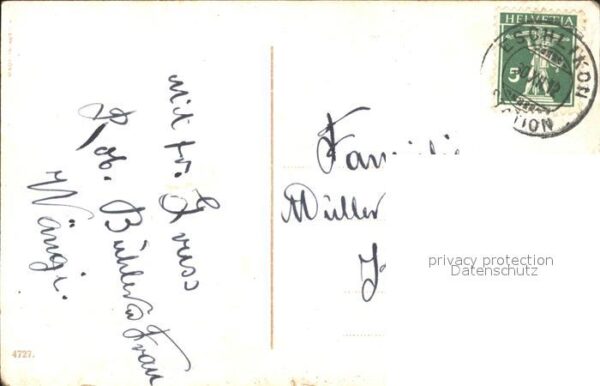 Mit fr. Gruss
Rob. Bühler u Frau
Wängi.
4727.
HELVETIA
5
ESCHLIKON
STATION
Famili
Müller
J
privacy protection
Datenschutz